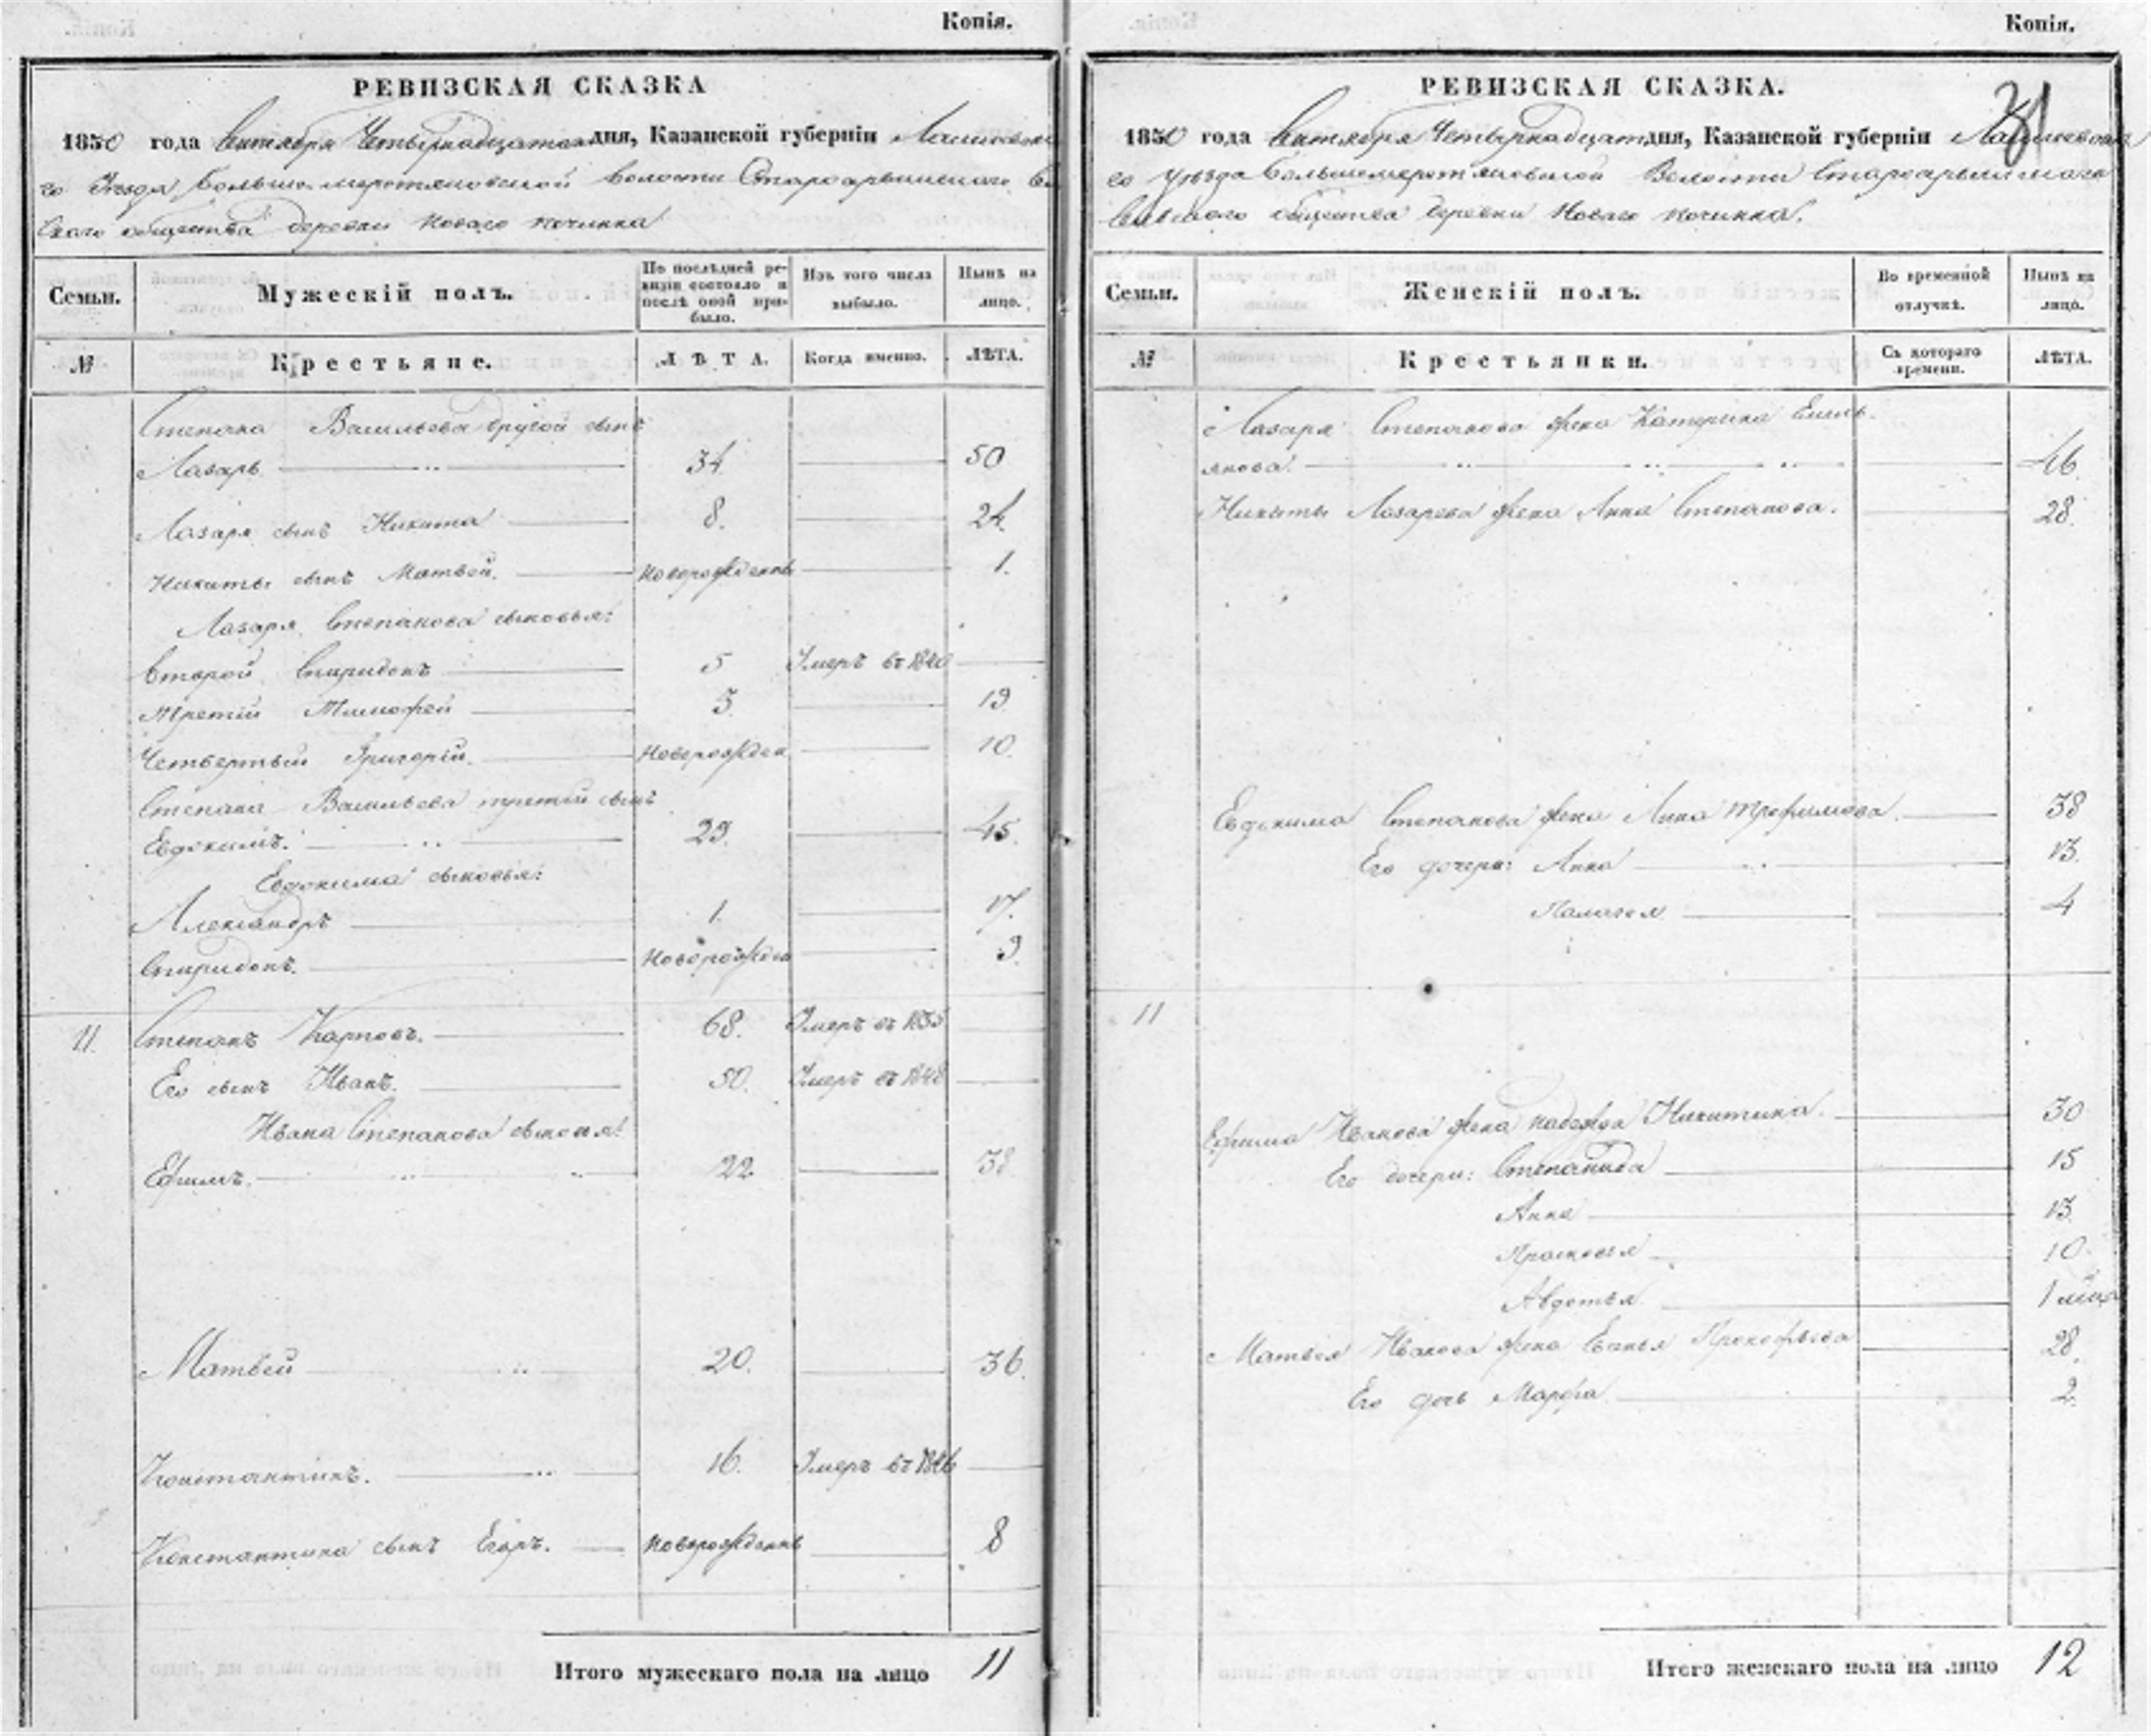 Копія.
РЕВИЗСКАЯ СКАЗКА
1850 года Октября Четырнадцатаго дня, Казанской губерніи Лаишевска
го Уезда Больше меретяковской волости Староарышскаго Се
скаго общества деревни Новаго починка
Семьи. Мужескій полъ. По послѣдней ре- визіи состояло и послѣ оной при- было. Изъ того числа выбыло. Нынѣ на лицо.
№ Крестьяне. ЛѢТА. Когда именно. ЛѢТА.
Степана Васильева другой сынъ
Лазарь 34 50
Лазаря сынъ Никита 8. 24.
Никиты сынъ Матвей. новорожденъ 1.
Лазаря Степанова сыновья:
Второй Спиридонъ 5 Умеръ въ 1840
Третій Тимофей 3 19
Четвертый Григорій. Новорожден 10.
Степана Васильева третій сынъ
Евдокимъ. 29. 45.
Евдокима сыновья:
Александръ 1. 17.
Спиридонъ. Новорожден 9.
11. Степанъ Карповъ. 68. Умеръ въ 1835
Его сынъ Иванъ. 50. Умеръ въ 1848
Ивана Степанова сыновья:
Ефимъ. 22 38
Матвей 20. 36.
Константинъ. 16. Умеръ въ 1846
Константина сынъ Егоръ. новорожденъ 8
Итого мужескаго пола на лицо 11
Копія.
31
РЕВИЗСКАЯ СКАЗКА.
1850 года Октября Четырнадцат дня, Казанской губерніи Лаишевска
го Уѣзда Большемеретяковской Волости Староарышскаго
Сельскаго общества деревни Новаго починка.
Семьи. Женскій полъ. Во временной отлучкѣ. Нынѣ на лицо.
№ Крестьянки. Съ котораго времени. ЛѢТА.
Лазаря Степанова жена Катерина Емель
янова. 46.
Никиты Лазарева жена Анна Степанова. 28.
Евдокима Степанова жена Анна Трофимова. 38
Его дочери: Анна 13.
Палагея 4
11
Ефима Иванова жена Надежда Никитина. 30
Его дочери: Степанида 15
Анна 13
Прасковья 10
Авдотья 1 мѣца
Матвея Иванова жена Прокофьева 28.
Его дочь Марфа 2.
Итого женскаго пола на лицо 12